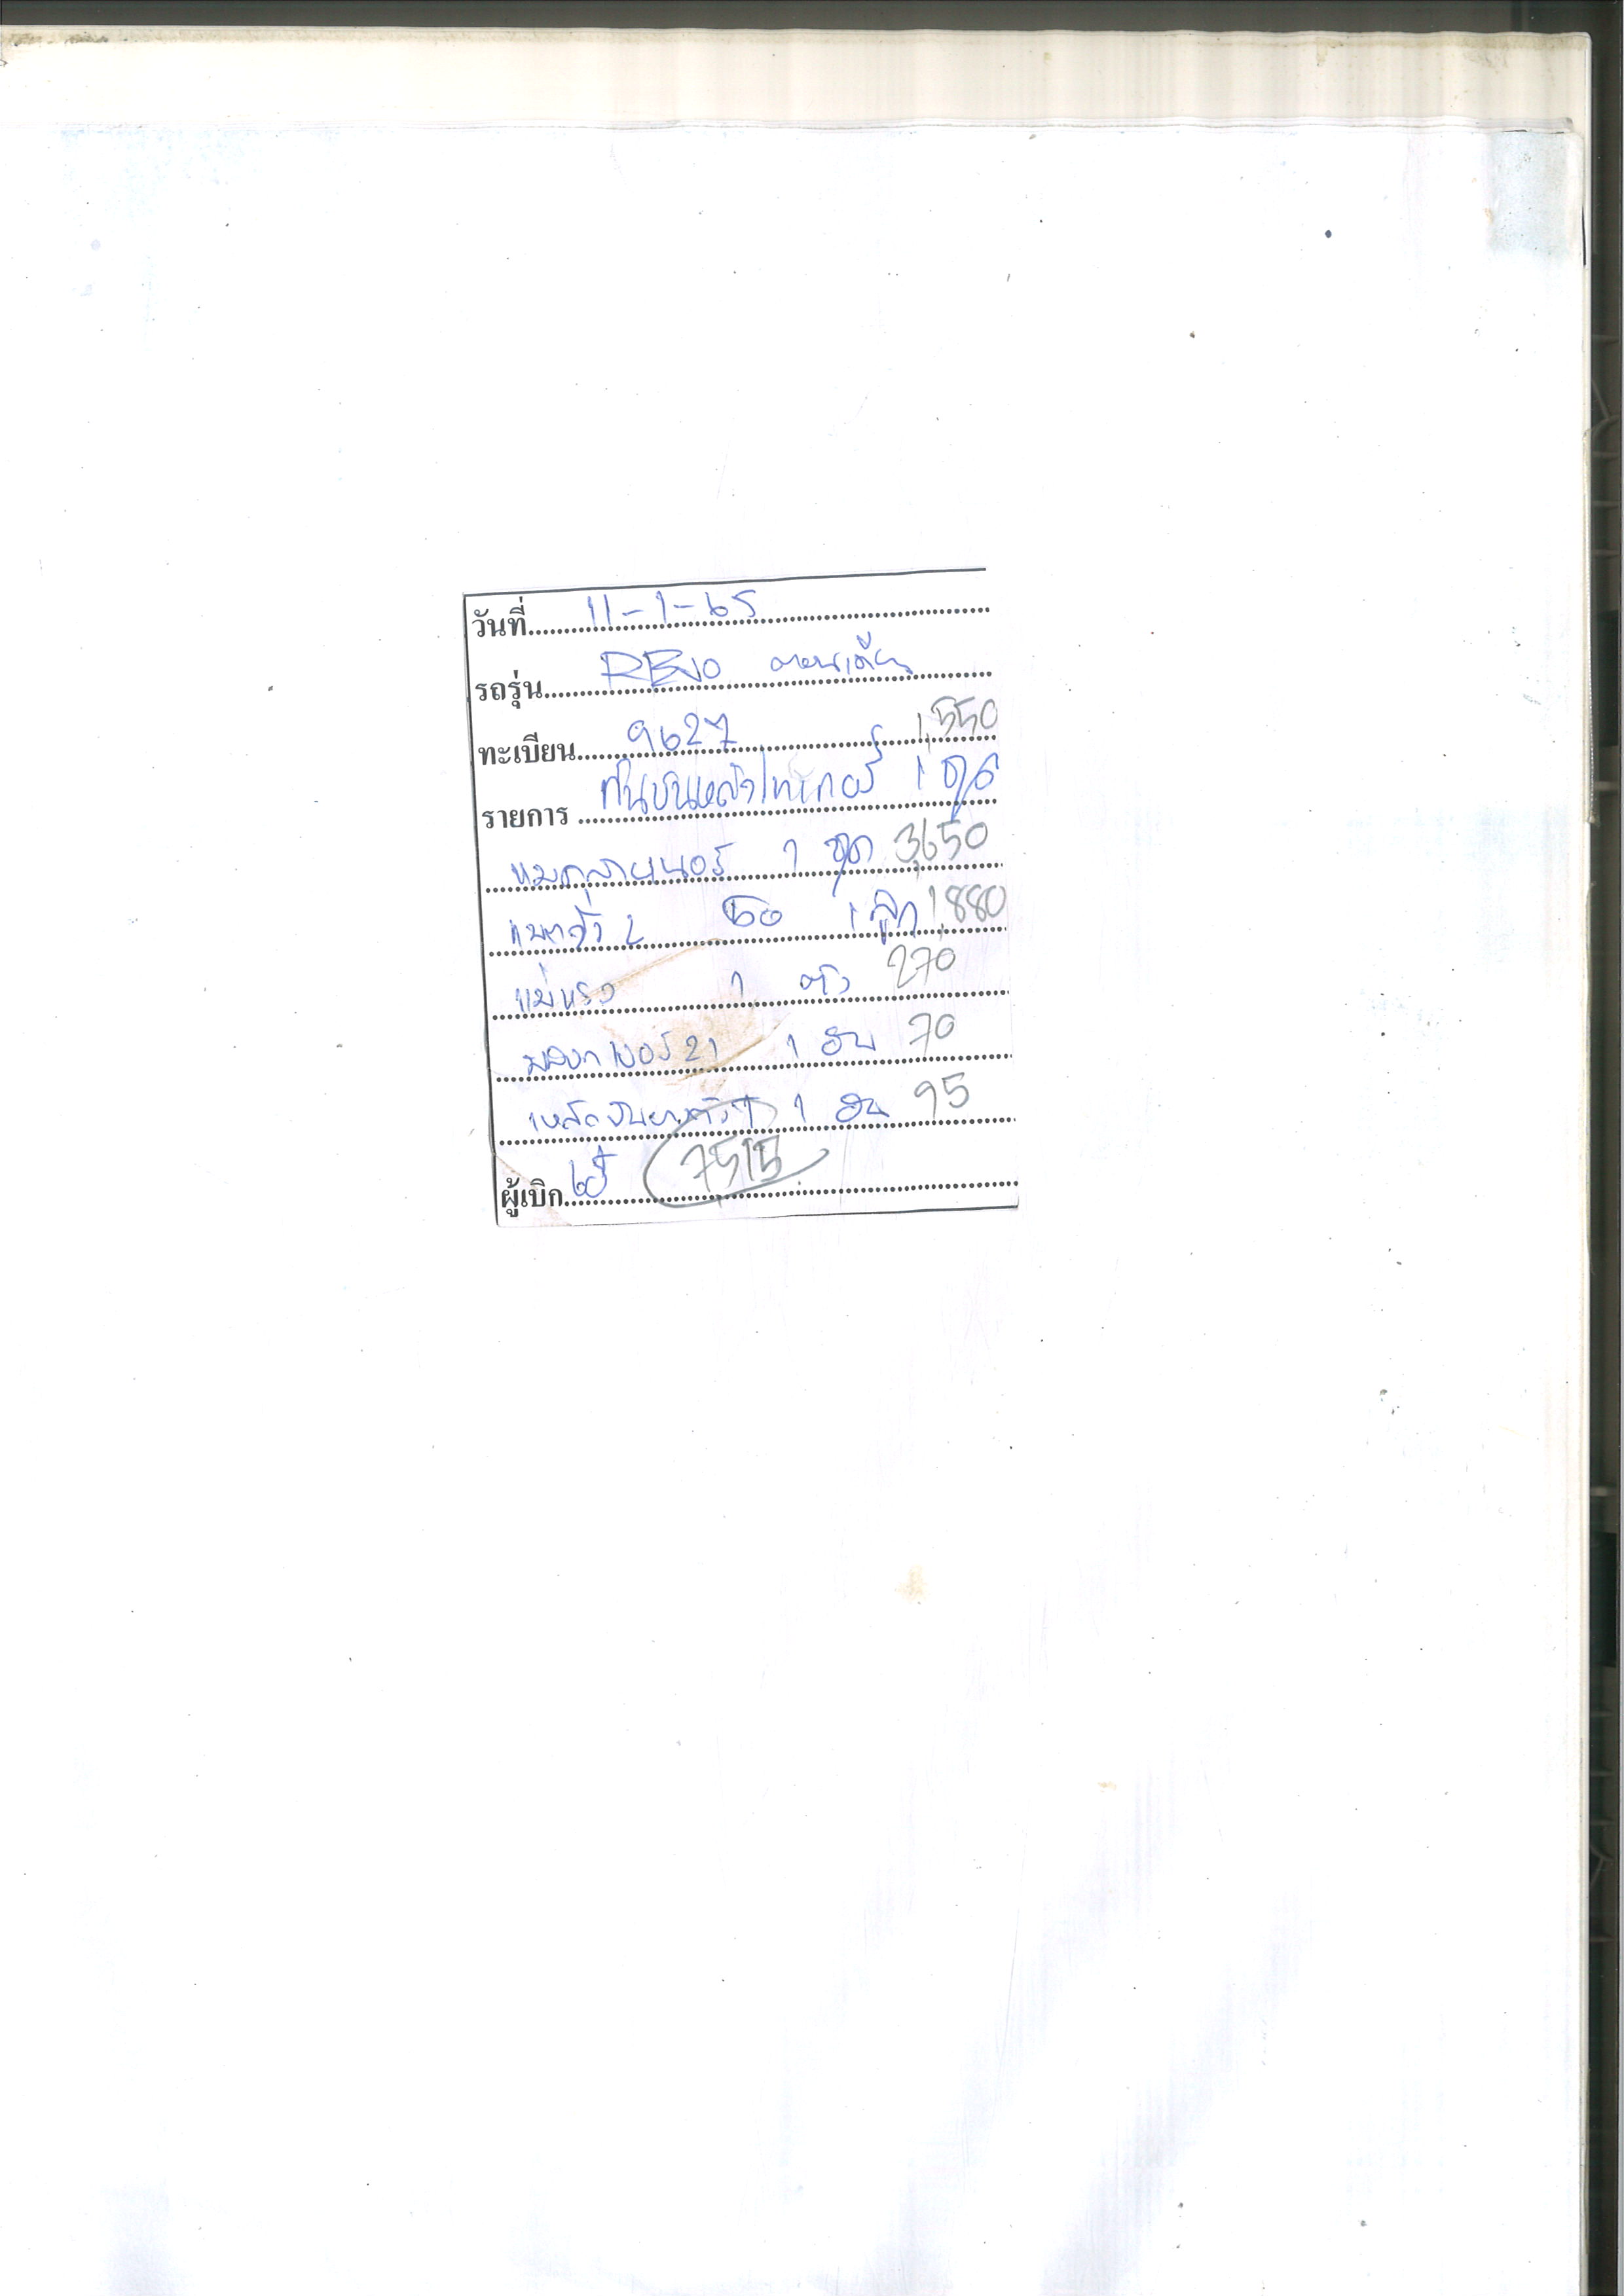 วันที่ 11-1-65
รถรุ่น REVO ตอนเดียว
ทะเบียน 9627 1,550
รายการ กันชนหลัง ไทเกอร์ 1 ชุด
แมคลายเนอร์ 1 ชุด 3,650
แบตจิ๋ว L 60 1 ลูก 1,880
แม่แรง 1 ตัว 270
บล๊อก เบอร์ 21 1 อัน 70
เหล็กขัน 1 อัน 95
7515
ผู้เบิก